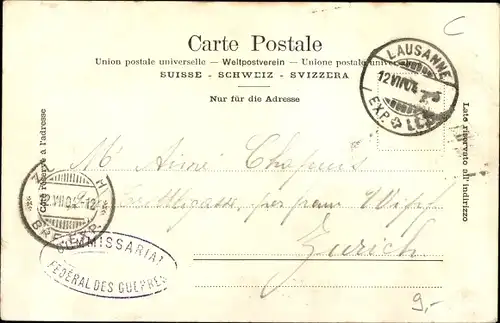 C
Carte Postale
Union postale universelle. – Weltpostverein – Unione postale univer
SUISSE - SCHWEIZ - SVIZZERA
Nur für die Adresse
LAUSANNE
12 VII 04
EXP. LET
Côté réservé à l'adresse
Lato riservato all'indirizzo
Mr Aimé Chapuis
Zurich
Z H
12 VII 04 -12
BRIEFEXP.
COMMISSARIAT
FÉDÉRAL DES GUERRES
9,-